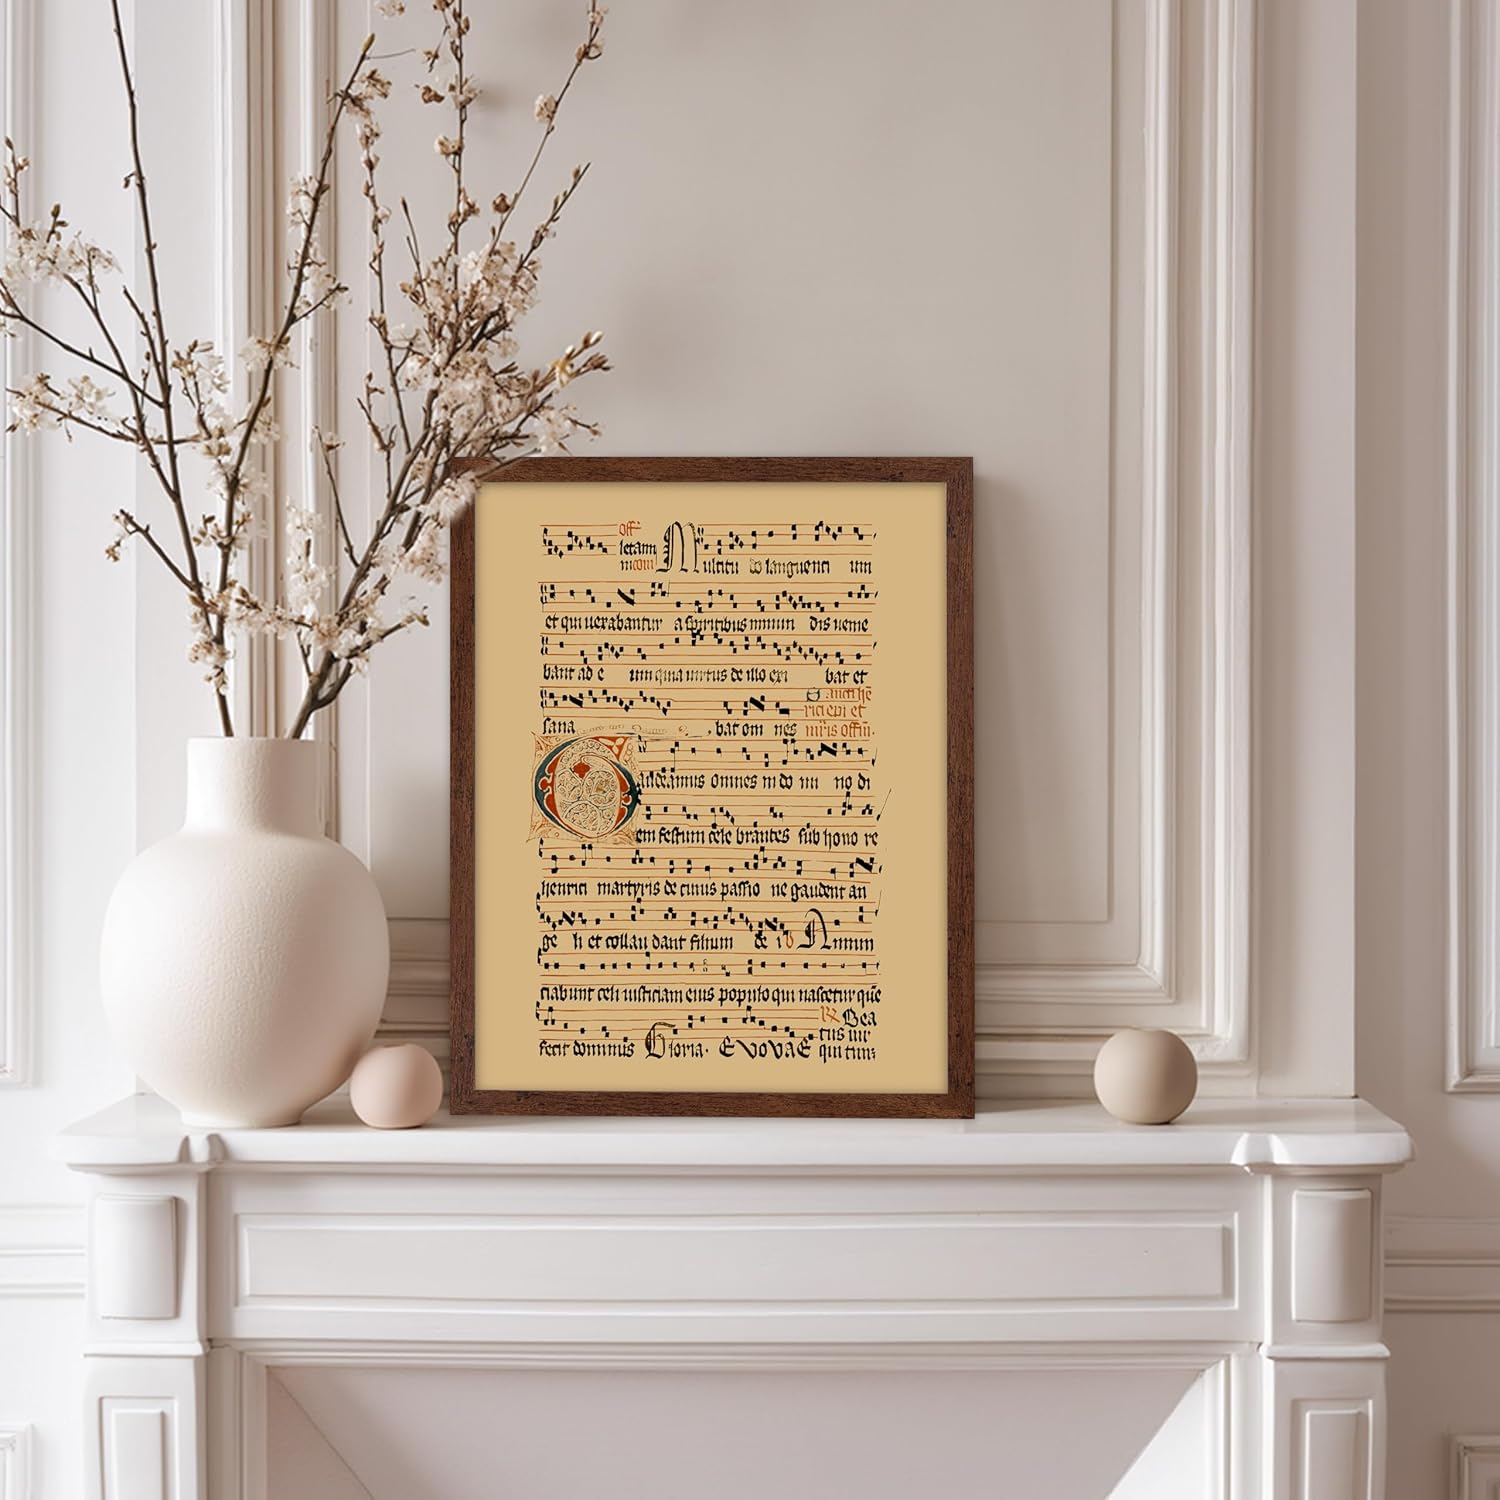 Offᵉ
letamĩ Multitu do languenti um
et qui uexabantur a spiritibus inmun dis ueme
bant ad e um quia uirtus de illo exi bat et
Sancti hē
rici epi et
sana bat om nes mr̃is offm̃.
Gaudeamus omnes in do mi no di
em festum cele brantes sub hono re
henrici martyris de cuius passio ne gaudent an
ge li et collau dant filium de i V Annun
ciabunt celi iusticiam eius populo qui nascetur quē
R Bea
tus uir
fecit dominus Gloria. EVOVAE qui tim